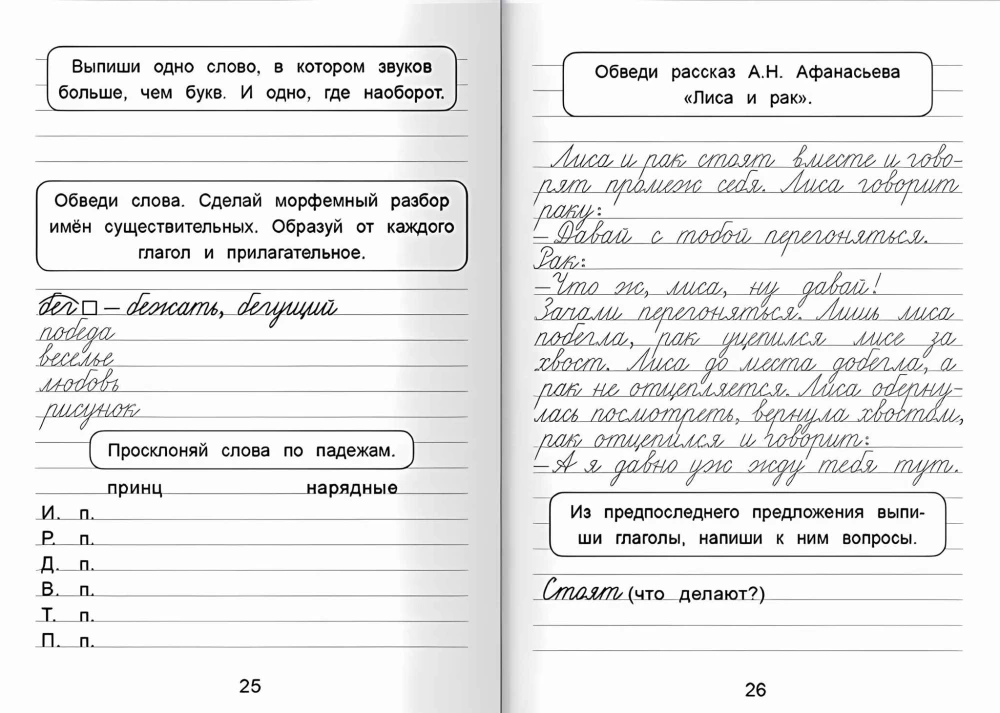 Выпиши одно слово, в котором звуков
больше, чем букв. И одно, где наоборот.
Обведи слова. Сделай морфемный разбор
имён существительных. Образуй от каждого
глагол и прилагательное.
бег□ – бежать, бегущий
победа
веселье
любовь
рисунок
Просклоняй слова по падежам.
принц нарядные
И. п.
Р. п.
Д. п.
В. п.
Т. п.
П. п.
25
Обведи рассказ А.Н. Афанасьева
«Лиса и рак».
Лиса и рак стоят вместе и гово-
рят промеж себя. Лиса говорит
раку:
– Давай с тобой перегоняться.
Рак:
– Что ж, лиса, ну давай!
Зачали перегоняться. Лишь лиса
побегла, рак уцепился лисе за
хвост. Лиса до места добегла, а
рак не отцепляется. Лиса оберну-
лась посмотреть, вернула хвостом,
рак отцепился и говорит:
– А я давно уж жду тебя тут.
Из предпоследнего предложения выпи-
ши глаголы, напиши к ним вопросы.
Стоят (что делают?)
26